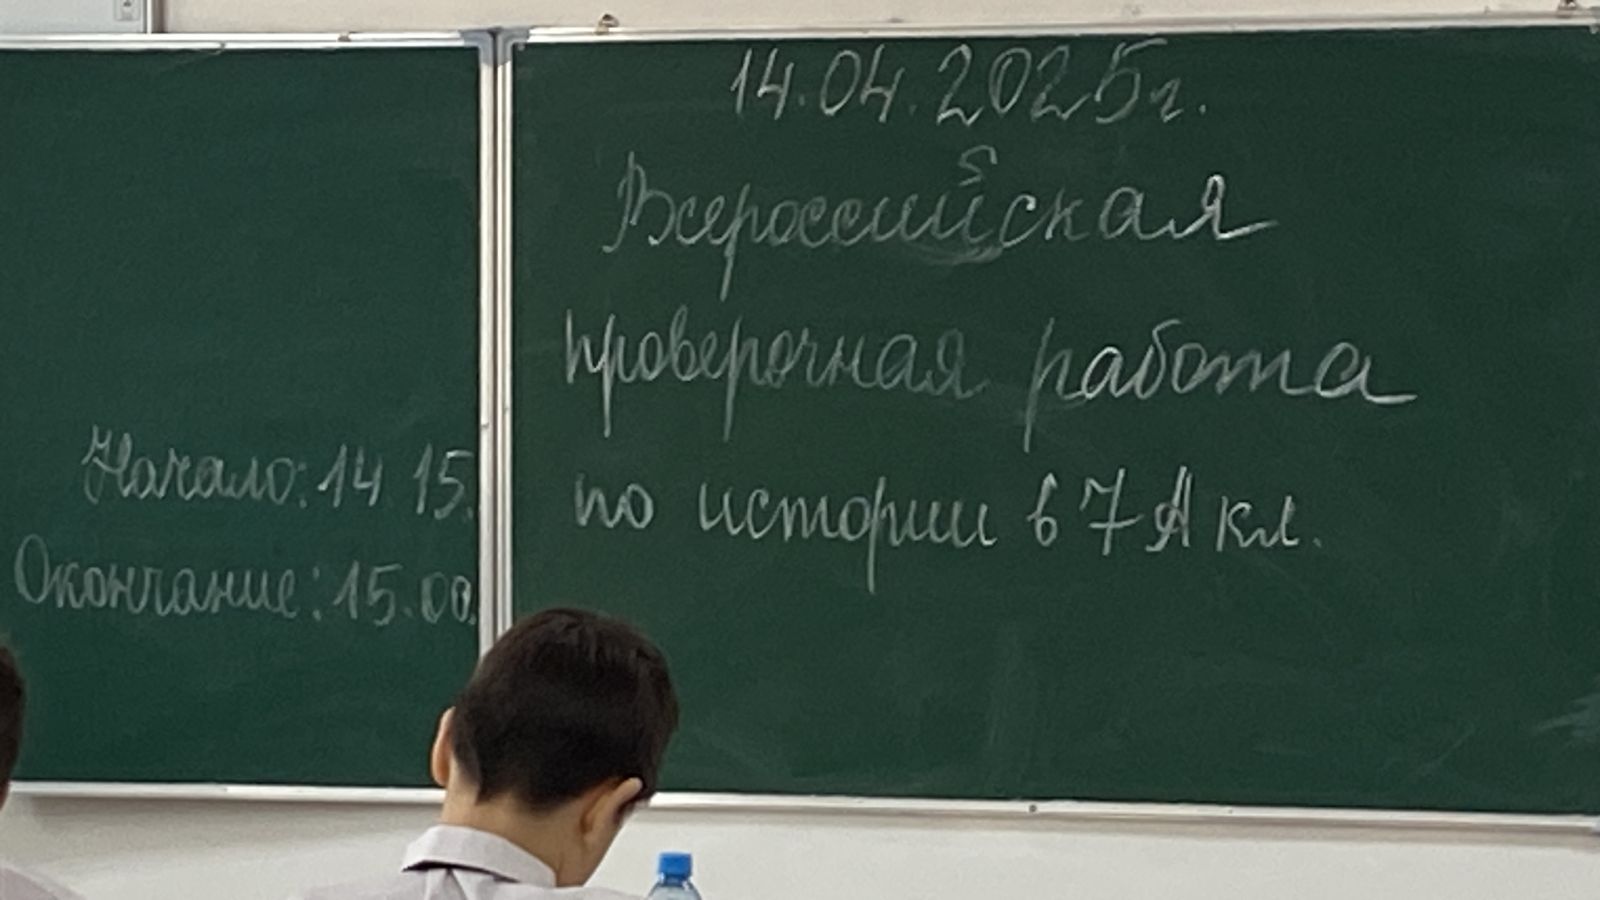 Начало: 14 15.
Окончание: 15.00.
14.04.2025г.
Всероссийская
проверочная работа
по истории в 7А кл.